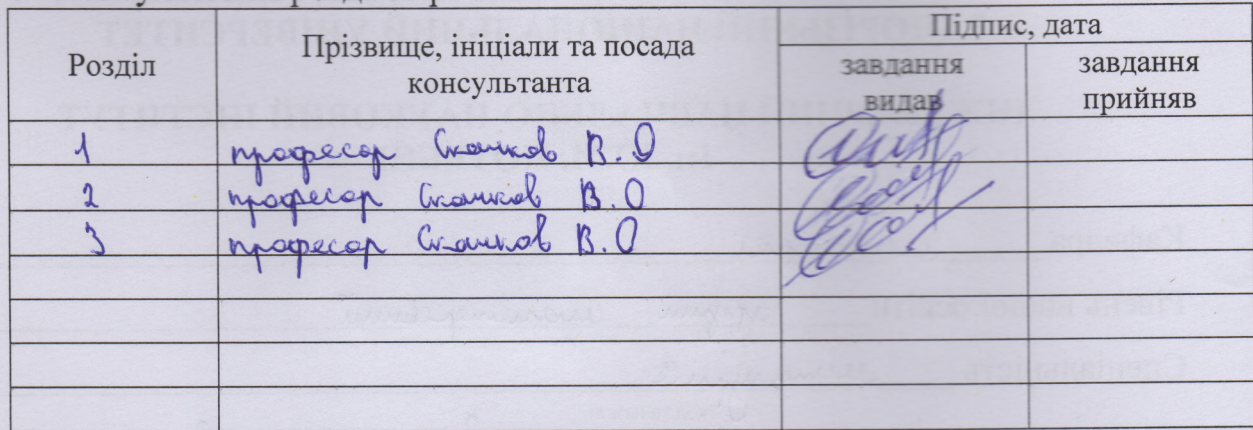 Розділ
Прізвище, ініціали та посада
консультанта
Підпис, дата
завдання
видав
завдання
прийняв
1 професор Скачков В.О
2 професор Скачков В.О
3 професор Скачков В.О